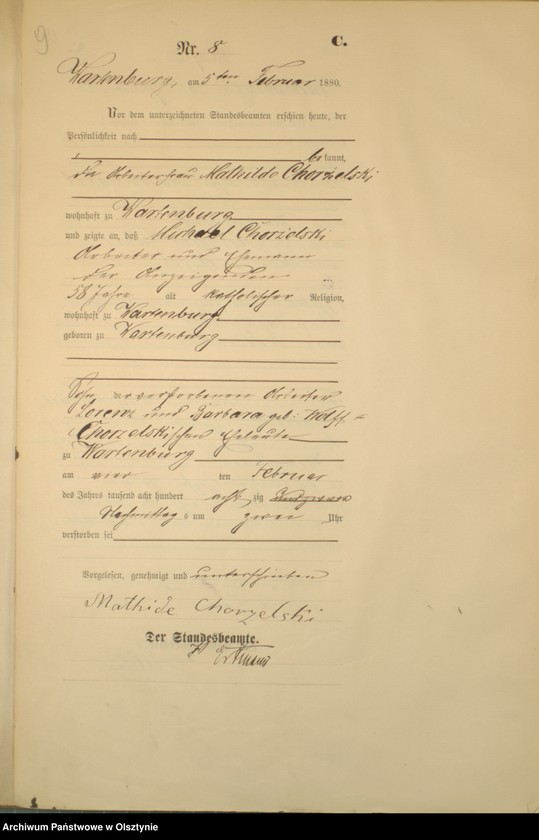 9
Nr. 8
C.
Wartenburg, am 5ten Februar 1880.
Vor dem unterzeichneten Standesbeamten erschien heute, der
Persönlichkeit nach
bekannt,
die Arbeiterfrau Mathilde Chorzelski
wohnhaft zu Wartenburg
und zeigte an, daß Michael Chorzelski
Arbeiter und Ehemann
der Anzeigenden
58 Jahre alt katholischer Religion,
wohnhaft zu Wartenburg
geboren zu Wartenburg
Sohn der verstorbenen Arbeiter
Lorenz und Barbara geb. Wolff =
Chorzelskischen Eheleute
zu Wartenburg
am vier ten Februar
des Jahres tausend acht hundert achtzig
Nachmittags um zwei Uhr
verstorben sei
Vorgelesen, genehmigt und unterschrieben
Mathilde Chorzelski
Der Standesbeamte.
Archiwum Państwowe w Olsztynie